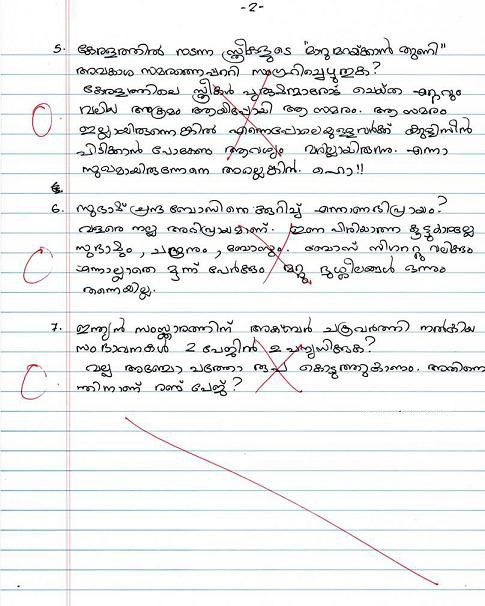 -2-
5. കേരളത്തിൽ നടന്ന സ്ത്രീകളുടെ "മാറുമറയ്ക്കാൻ തുണി"
അവകാശ സമരത്തെപ്പററി സംഗ്രഹിച്ചെഴുതുക?
കേരളത്തിലെ സ്ത്രീകൾ പുരുഷന്മാരോട് ചെയ്ത ഏറ്റവും
വലിയ അക്രമം ആയിപ്പോയി ആ സമരം. ആ സമരം
ഇല്ലായിരുന്നെങ്കിൽ എന്നെപ്പോലെയുള്ളവർക്ക് കുളിസീൻ
പിടിക്കാൻ പോകേണ്ട ആവശ്യം വരില്ലായിരുന്നു. എന്നാ
സുഖമായിരുന്നേനെ അല്ലെങ്കിൽ. ഹൊ!!
6. സുഭാഷ് ചന്ദ്ര ബോസിനെ കുറിച്ച് എന്താണഭിപ്രായം?
വളരെ നല്ല അഭിപ്രായമാണ്. ഇണ പിരിയാത്ത കൂട്ടുകാരല്ലേ
സുഭാഷും, ചന്ദ്രനും, ബോസും. ബോസ് സിഗററ്റു വലിക്കും
എന്നല്ലാതെ മൂന്ന് പേർക്കും മറ്റു ദുശ്ശീലങ്ങൾ ഒന്നും
തന്നെയില്ല.
7. ഇന്ത്യൻ സംസ്ക്കാരത്തിന് അക്ബർ ചക്രവർത്തി നൽകിയ
സംഭാവനകൾ 2 പേജിൽ ഉപന്യസിക്കുക?
വല്ല അഞ്ചോ പത്തോ രൂപ കൊടുത്തുകാണും. അതിനെ
ന്തിനാണ് രണ്ട് പേജ്?